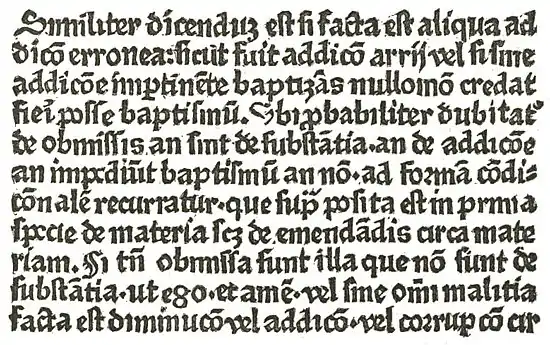 Similiter dicenduꝫ est si facta est aliqua ad
dicō erronea: sicut fuit addicō arrij vel si sine
addicōe imꝑtinēte baptizās nullomō credat
fieꝛi posse baptismū. Ubi ꝓbabiliter dubitat᷑
de obmissis, an sint de substātia, an de addicōe
an impediūt baptismū an nō, ad formā cōdi⸗
cōnalē recurratur, que sup̄ posita est in prima
specie de materia scꝫ de emendādis circa mate
riam. Si tn̄ obmissa sunt illa que nō sunt de
substātia, ut ego, et amē, vel sine om̄i malitia
facta est diminucō vel addicō, vel corrupcō cir